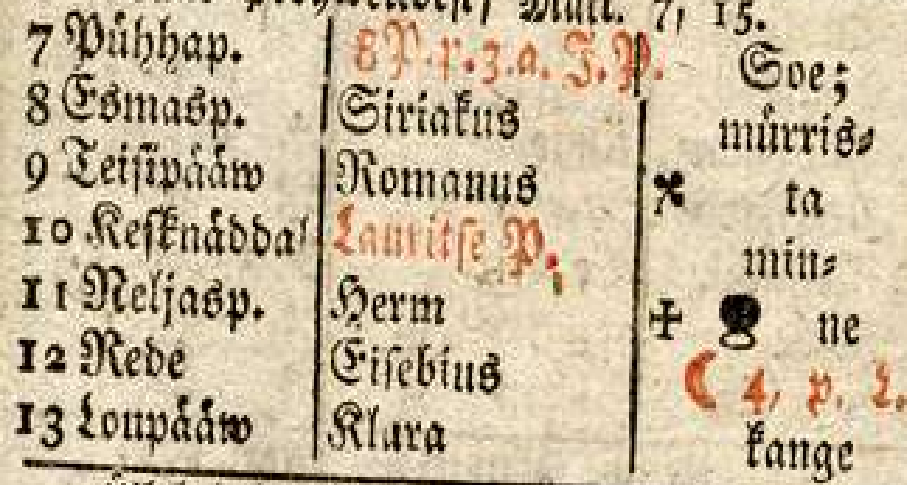 Matt. 7, 15.
7 Pühhap. 8 P. p. 3. a. J. P. Soe;
8 Esmasp. Siriakus mürris⸗
9 Teisipääw Romanus ta
10 Kesknäddal Lauritse P. min⸗
11 Neljasp. Herm ne
12 Rede Eisebius 4, p. L.
13 Loupääw Klara kange